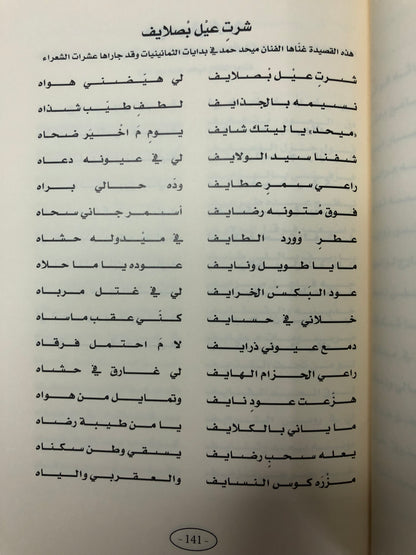 شرتِ عيْل بْصلايف
هذه القصيدة غنّاها الفنان ميحد حمد في بدايات الثمانينيات وقد جاراها عشرات الشعراء
شرتِ عيْل بْصلايف لي هيّضني هواه
نسيمه بالجذايف لطفِ طيّب شذاه
«ميحد» يا ليتك شايف يومِ مَ اخْيَر ضحاه
شفنا سيد الولايف لي في عيونه دعاه
راعي سمرٍ عطايف ودّه حالي براه
فوق مْتونه رضايف أسمر جاني سحاه
عطرٍ وْورد الطايف في ميْدوله حشاه
ما يا طويل ونايف عوده يا ما حلاه
عود البَكس الخرايف لي في غتل مرباه
خلاني في حسايف كنّي عقب ماساه
دمع عيوني ذرايف لا مَ احتمل فرقاه
راعي الحزام الهايف لي غارقٍ في حشاه
هزّعت عودٍ نايف وتمايل من هواه
ما ياني بالكلايف يا من طيبة رضاه
يعله سحبٍ رضايف يسقي وطن سكناه
مزْرَه كوس النسايف والعقربي والياه
- 141 -